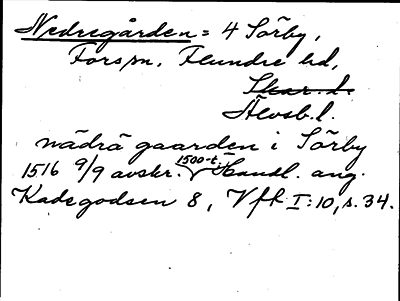 Nedregården = 4 Sörby,
Fors sn, Flundre hd,
Skar. l.
Älvsb. l.
nädrä gaarden i Sörby
1516 9/9 avskr. 1500-t. Handl. ang.
Kadsgodsen 8, Vfh I:10, s. 34.